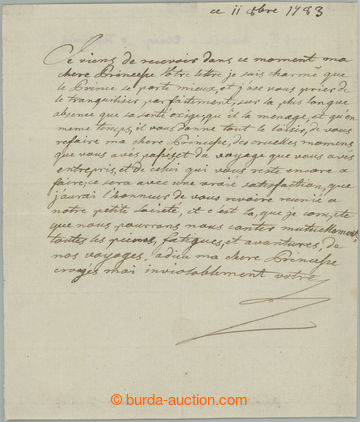 ce 11 8bre 1783
Je viens de recevoir dans ce moment ma
chere Princesse votre lettre je suis charmé que
le Prince se porte mieux, et j'ose vous prier de
le tranquiliser parfaitement, sur la plus longue
absence que sa santé exige, qu'il la menage, et qu'en
meme temps, il vous donne tout le loisir, de vous
refaire ma chere Princesse, des cruelles momens
que vous avés passés et du voyage que vous avés
entrepris, et de celui qui vous reste encore a
faire, ce sera avec une vraie satisfaction, que
j'aurai l'honneur de vous revoire reunié a
notre petite Societé, et c'est la, que je compte
que nous pourrons nous conter mutuellement,
toutes les peines, fatigues, et avantures, de
nos voyages, adieu ma chere Princesse
croyés moi inviolablement votre
© www.burda-auction.com